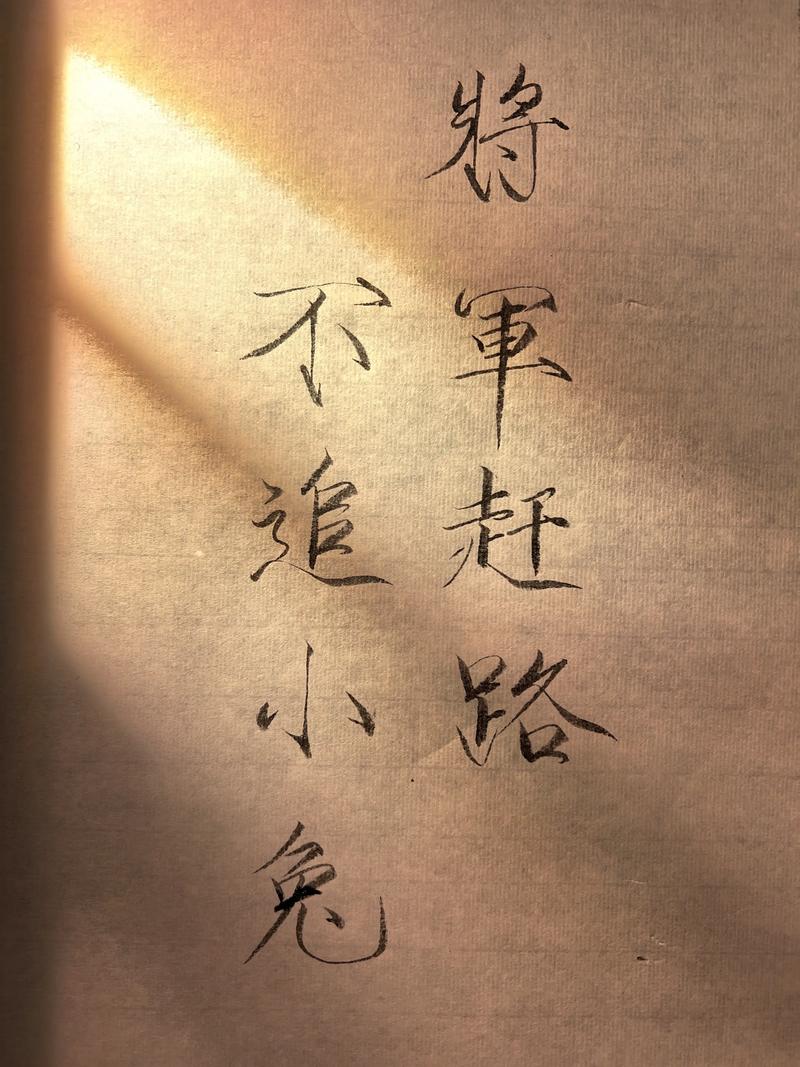 將軍赶路
不追小兔